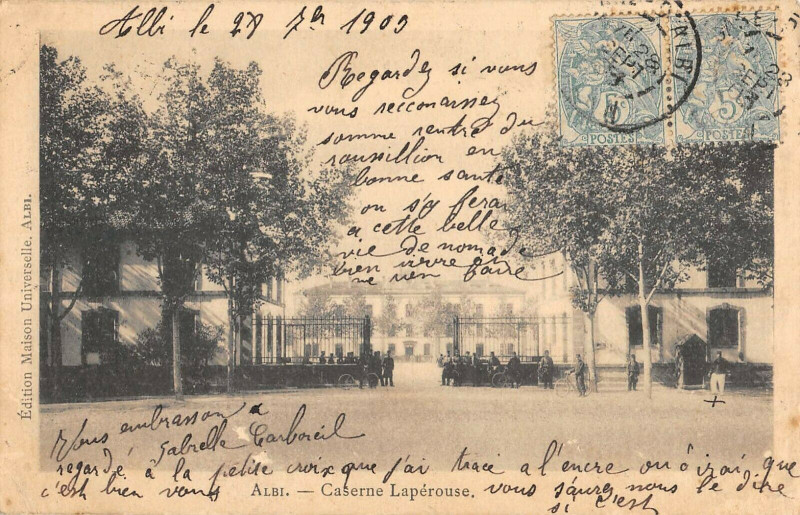 Albi le 28 7bre 1903
Regardez si vous
vous reconnaissez
somme rentré du
roussillion en
bonne santé
on s'y ferai
a cette belle
vie de nomade
bien vivre et
ne rien faire
5 POSTES
5 POSTES
ALBI
28
SEPT
Édition Maison Universelle. ALBI.
Vous embrasson
Gabrelle
regardé à la petite croix que j'ai tracé a l'encre que
c'est bien vous
ALBI. — Caserne Lapérouse.
vous saurez nous le dire
si c'est